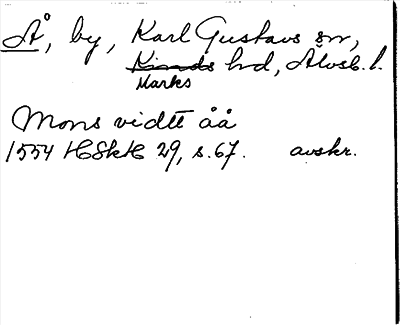 Å, by, Karl Gustavs sn,
Kinds hd, Älvsb. l.
Marks
Mons vidtt åå
1554 HSkH 29, s. 67. avskr.